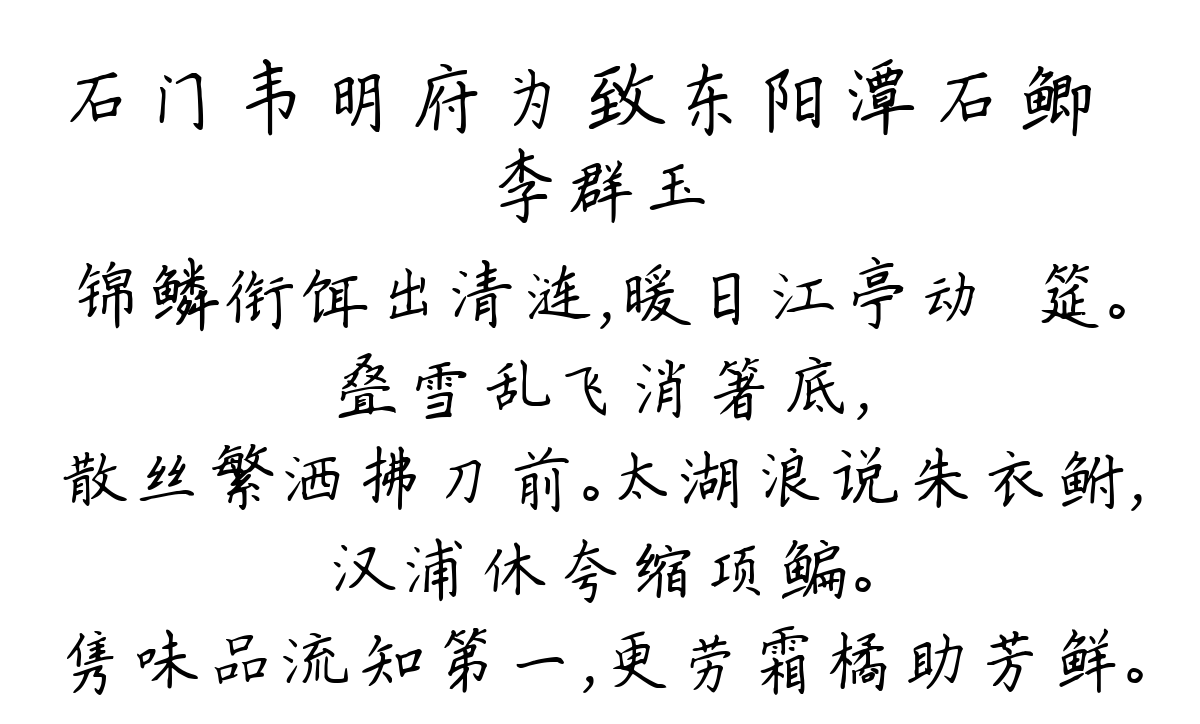 石门韦明府为致东阳潭石鲫
李群玉
锦鳞衔饵出清涟,暖日江亭动 筵。
叠雪乱飞消箸底,
散丝繁洒拂刀前。太湖浪说朱衣鲋,
汉浦休夸缩项鳊。
隽味品流知第一,更劳霜橘助芳鲜。